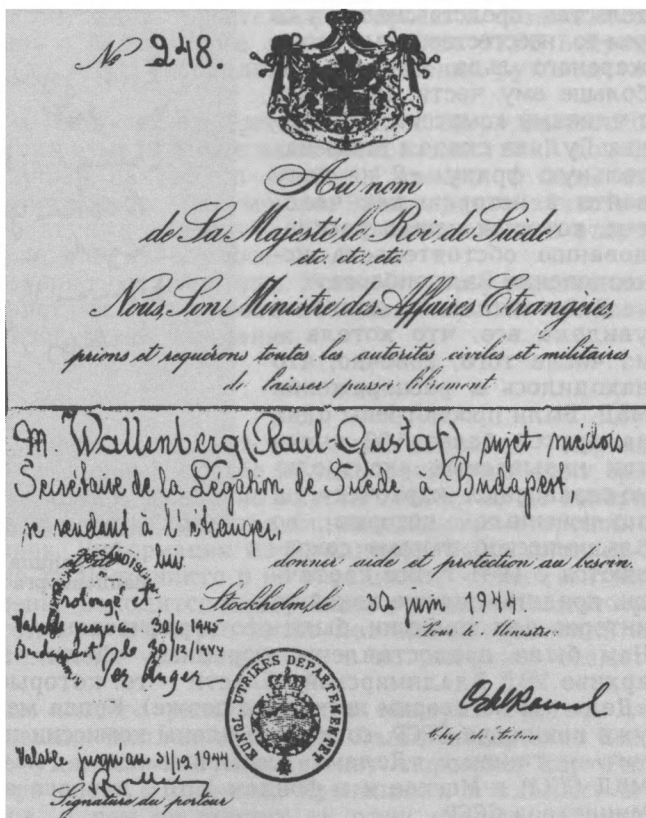 No 248.
Au nom
de Sa Majesté le Roi de Suède
etc. etc. etc.
Nous, Son Ministre des Affaires Etrangères,
prions et requérons toutes les autorités civiles et militaires
de laisser passer librement
M. Wallenberg (Raul Gustaf), sujet suédois,
Secrétaire de la Légation de Suède à Budapest,
se rendant à l'étranger,
et de lui donner aide et protection au besoin.
Prolongé
Stockholm, le 30 juin 1944.
Valable jusqu'au 30/6 1945
Pour le Ministre:
Budapest, le 30/12/1944
Per Anger
KUNGL. UTRIKES DEPARTEMENTET
Chef de Section
Valable jusqu'au 31/12 1944
Signature du porteur